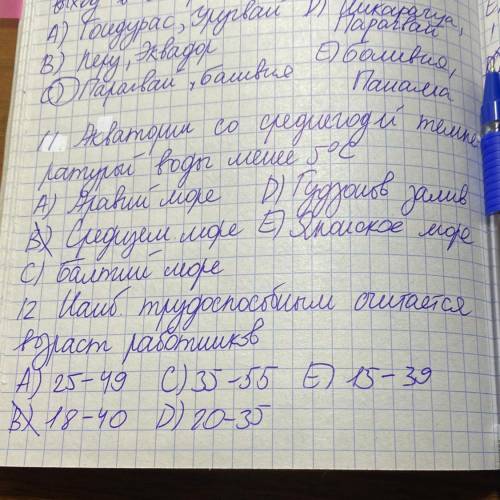 выход в
A) Гондурас, Уругвай D) Никарагуа,
Парагвай
B) Перу, Эквадор E) Боливия,
C) Парагвай, Боливия Панама
11 Акватории со среднегодй темпе
ратурый воды менее 5°C
A) Аравий море D) Гудзонов залив
B) Средизем море E) Японское море
C) балтий море
12 Наиб. трудоспособным считается
возраст работников
A) 25-49 C) 35-55 E) 15-39
B) 18-40 D) 20-35